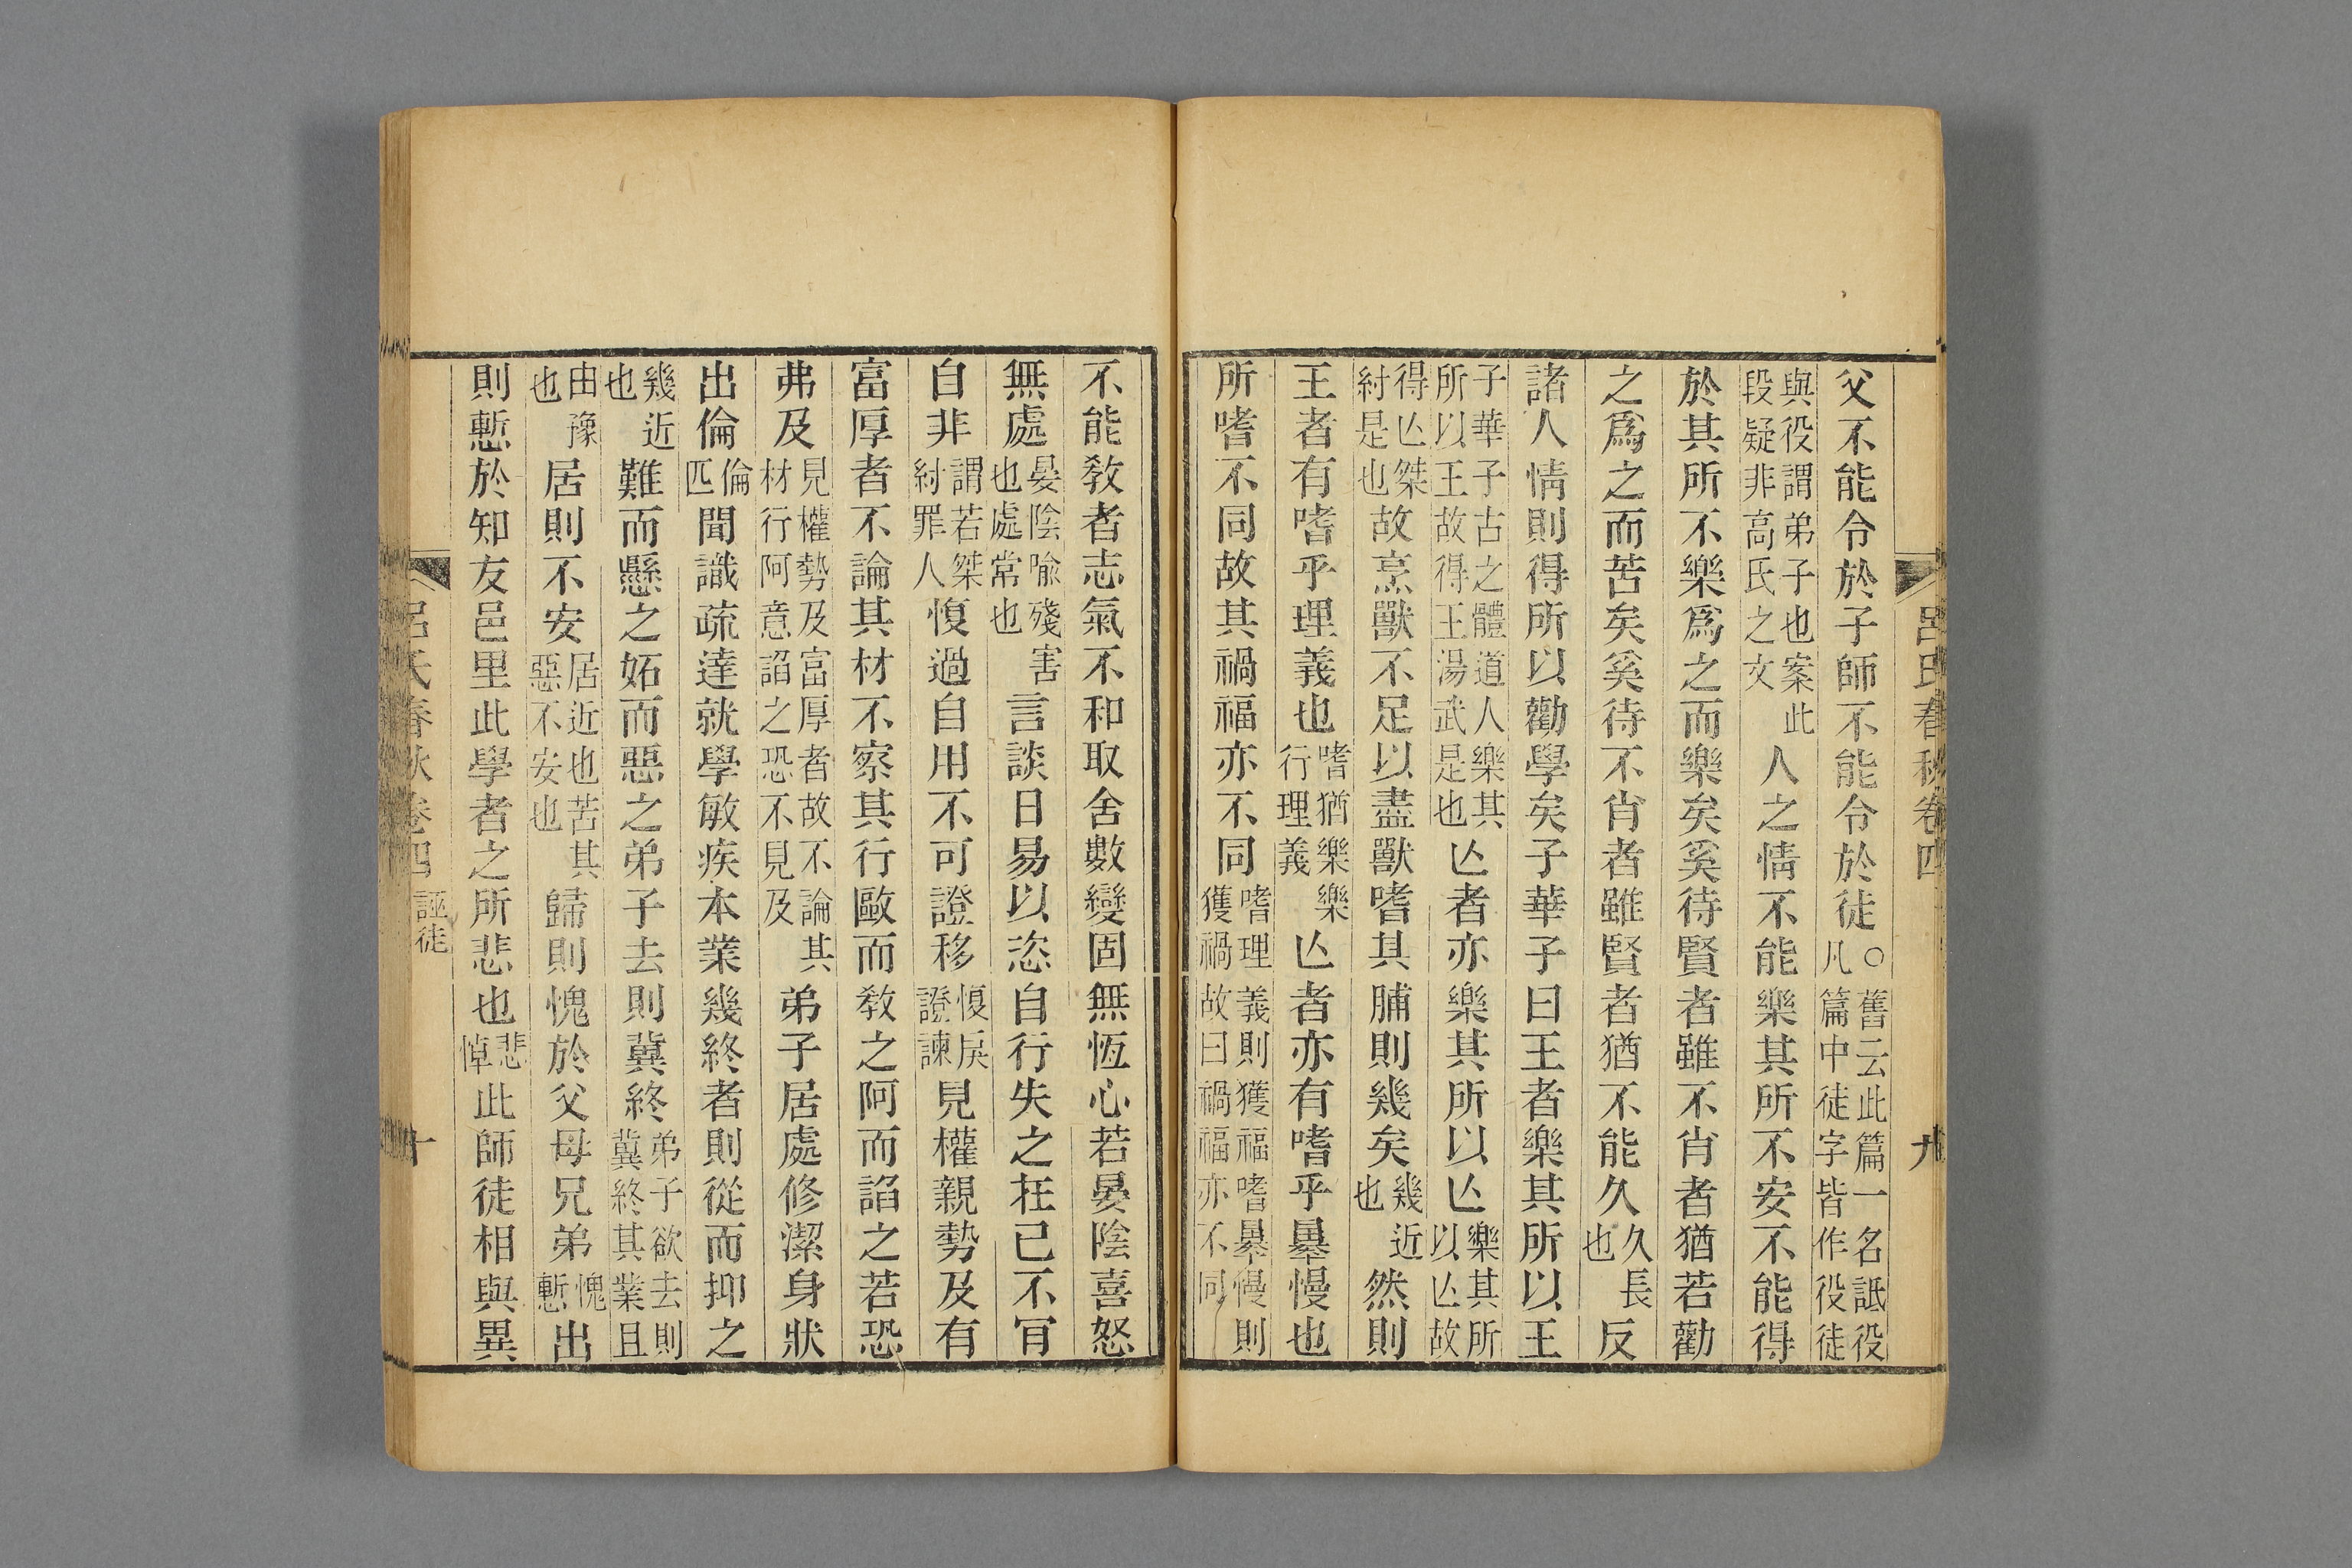 呂氏春秋卷四 九
父不能令於子師不能令於徒○舊云此篇一名詆役凡篇中徒字皆作役徒
與役謂弟子也案此段疑非高氏之文人之情不能樂其所不安不能得
於其所不樂爲之而樂矣奚待賢者雖不肖者猶若勸
之爲之而苦矣奚待不肖者雖賢者猶不能久久長也反
諸人情則得所以勸學矣子華子曰王者樂其所以王
子華子古之體道人樂其所以王故得王湯武是也亾者亦樂其所以亾樂其所以亾故
得亾桀紂是也故烹獸不足以盡獸嗜其脯則幾矣幾近也然則
王者有嗜乎理義也嗜猶樂樂行理義亾者亦有嗜乎㬥慢也
所嗜不同故其禍福亦不同嗜理義則獲福嗜㬥慢則獲禍故曰禍福亦不同
不能敎者志氣不和取舍數變固無恆心若晏陰喜怒
無處晏陰喻殘害也處常也言談日易以恣自行失之在己不肎
自非謂若桀紂罪人愎過自用不可證移愎戾證諫見權親勢及有
富厚者不論其材不察其行歐而敎之阿而諂之若恐
弗及見權勢及富厚者故不論其材行阿意諂之恐不見及弟子居處修潔身狀
出倫倫匹聞識疏達就學敏疾本業幾終者則從而抑之
幾近也難而懸之妬而惡之弟子去則冀終弟子欲去則冀終其業且
由豫也居則不安居近也苦其惡不安也歸則愧於父母兄弟愧慙出
則慙於知友邑里此學者之所悲也悲悼此師徒相與異
呂氏春秋卷四 誣徒 十